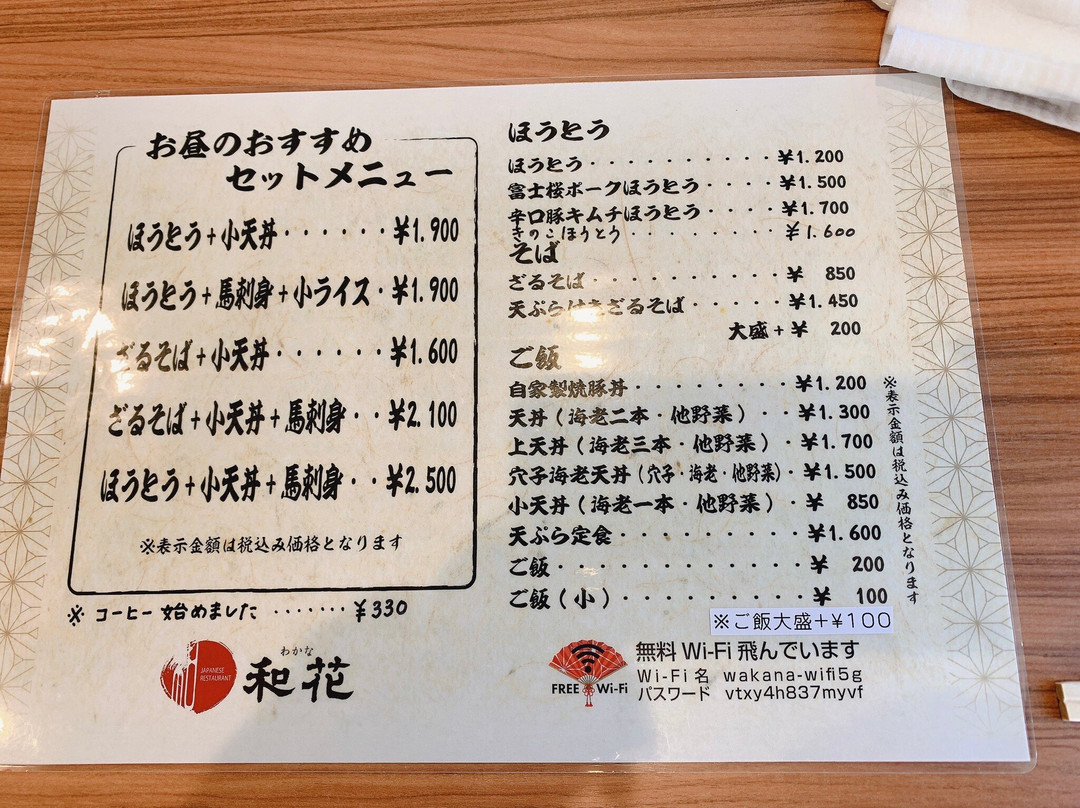 お昼のおすすめ
セットメニュー
ほうとう+小天丼・・・・・・¥1.900
ほうとう+馬刺身+小ライス・¥1.900
ざるそば+小天丼・・・・・・¥1.600
ざるそば+小天丼+馬刺身・・¥2.100
ほうとう+小天丼+馬刺身・・¥2.500
※表示金額は税込み価格となります
※ コーヒー始めました ・・・・・・・¥330
JAPANESE
RESTAURANT
わかな
和花
ほうとう
ほうとう・・・・・・・・・・¥1.200
富士桜ポークほうとう・・・・¥1.500
辛口豚キムチほうとう・・・・¥1.700
きのこほうとう・・・・・・・・¥1.600
そば
ざるそば・・・・・・・・・・¥ 850
天ぷら付きざるそば・・・・・¥1.450
大盛+¥ 200
ご飯
自家製焼豚丼・・・・・・・・¥1.200
天丼(海老二本・他野菜)・・¥1.300
上天丼(海老三本・他野菜)・¥1.700
穴子海老天丼(穴子・海老・他野菜)・¥1.500
小天丼(海老一本・他野菜)・¥ 850
天ぷら定食・・・・・・・・・¥1.600
ご飯・・・・・・・・・・・・¥ 200
ご飯(小)・・・・・・・・・¥ 100
※ご飯大盛+¥100
※表示金額は税込み価格となります
FREE Wi-Fi
無料 Wi-Fi 飛んでいます
Wi-Fi 名 wakana-wifi5g
パスワード vtxy4h837myvf